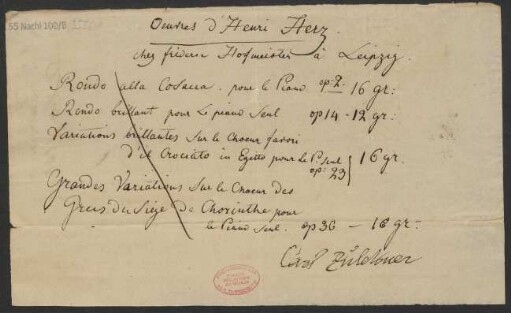 55 Nachl 100/B
Oeuvres d'Henri Herz
chez frideric Hofmeister à Leipzig.
Rondo alla Cosacca. pour le Piano op: 2. 16 gr:
Rondo brillant pour Le piano Seul op 14 - 12 gr:
Variations brillantes sur le Choeur favori
d'il Crociato in Egitto pour le P. seul op: 23 } 16 gr.
Grandes Variations sur le Choeur des
Grecs du Siège de Chorinthe pour
le Piano seul. op 36 - 16 gr:
Carl